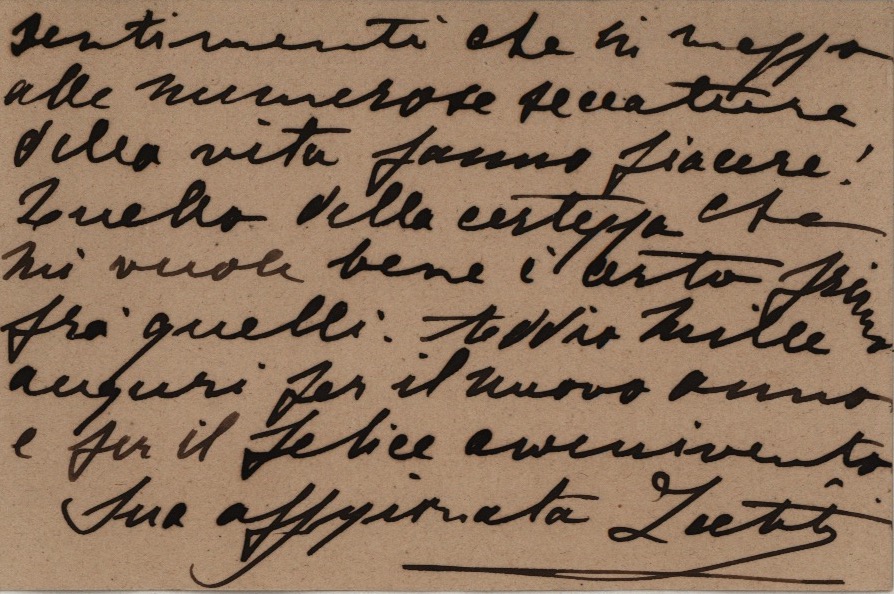 sentimenti che in mezzo
alle numerose seccature
della vita fanno piacere!
Quello della certezza che
mi vuole bene è certo primo
fra quelli. Addio mille
auguri per il nuovo anno
e per il felice avvenimento
Sua affezionata